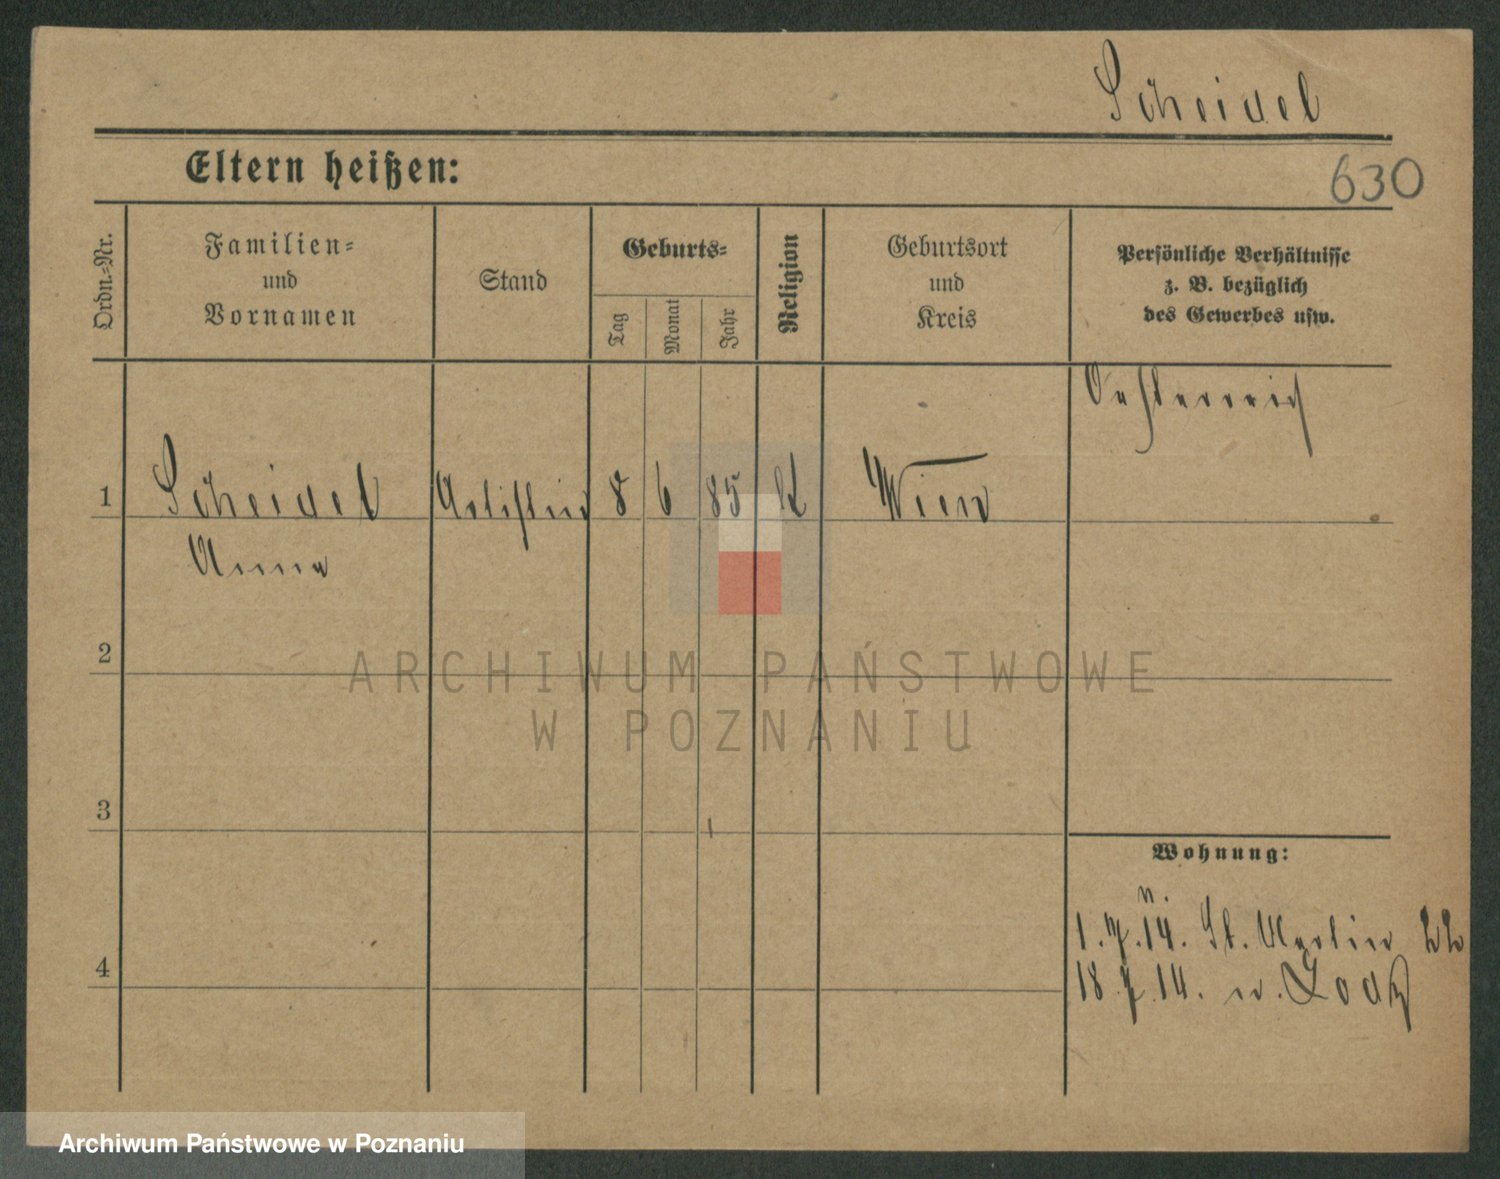 Scheidel
Eltern heißen:
630
Ordn.-Nr.
Familien-
und
Vornamen
Stand
Geburts-
Tag
Monat
Jahr
Religion
Geburtsort
und
Kreis
Persönliche Verhältnisse
z. B. bezüglich
des Gewerbes usw.
Oesterreich
1 Scheidel Artistin 8 6 85 K Wien
Anna
2
3
Wohnung:
1. 7. 14. St. Martin 22
4
18 7 14. n. Lodz
ARCHIWUM PAŃSTWOWE
W POZNANIU
Archiwum Państwowe w Poznaniu